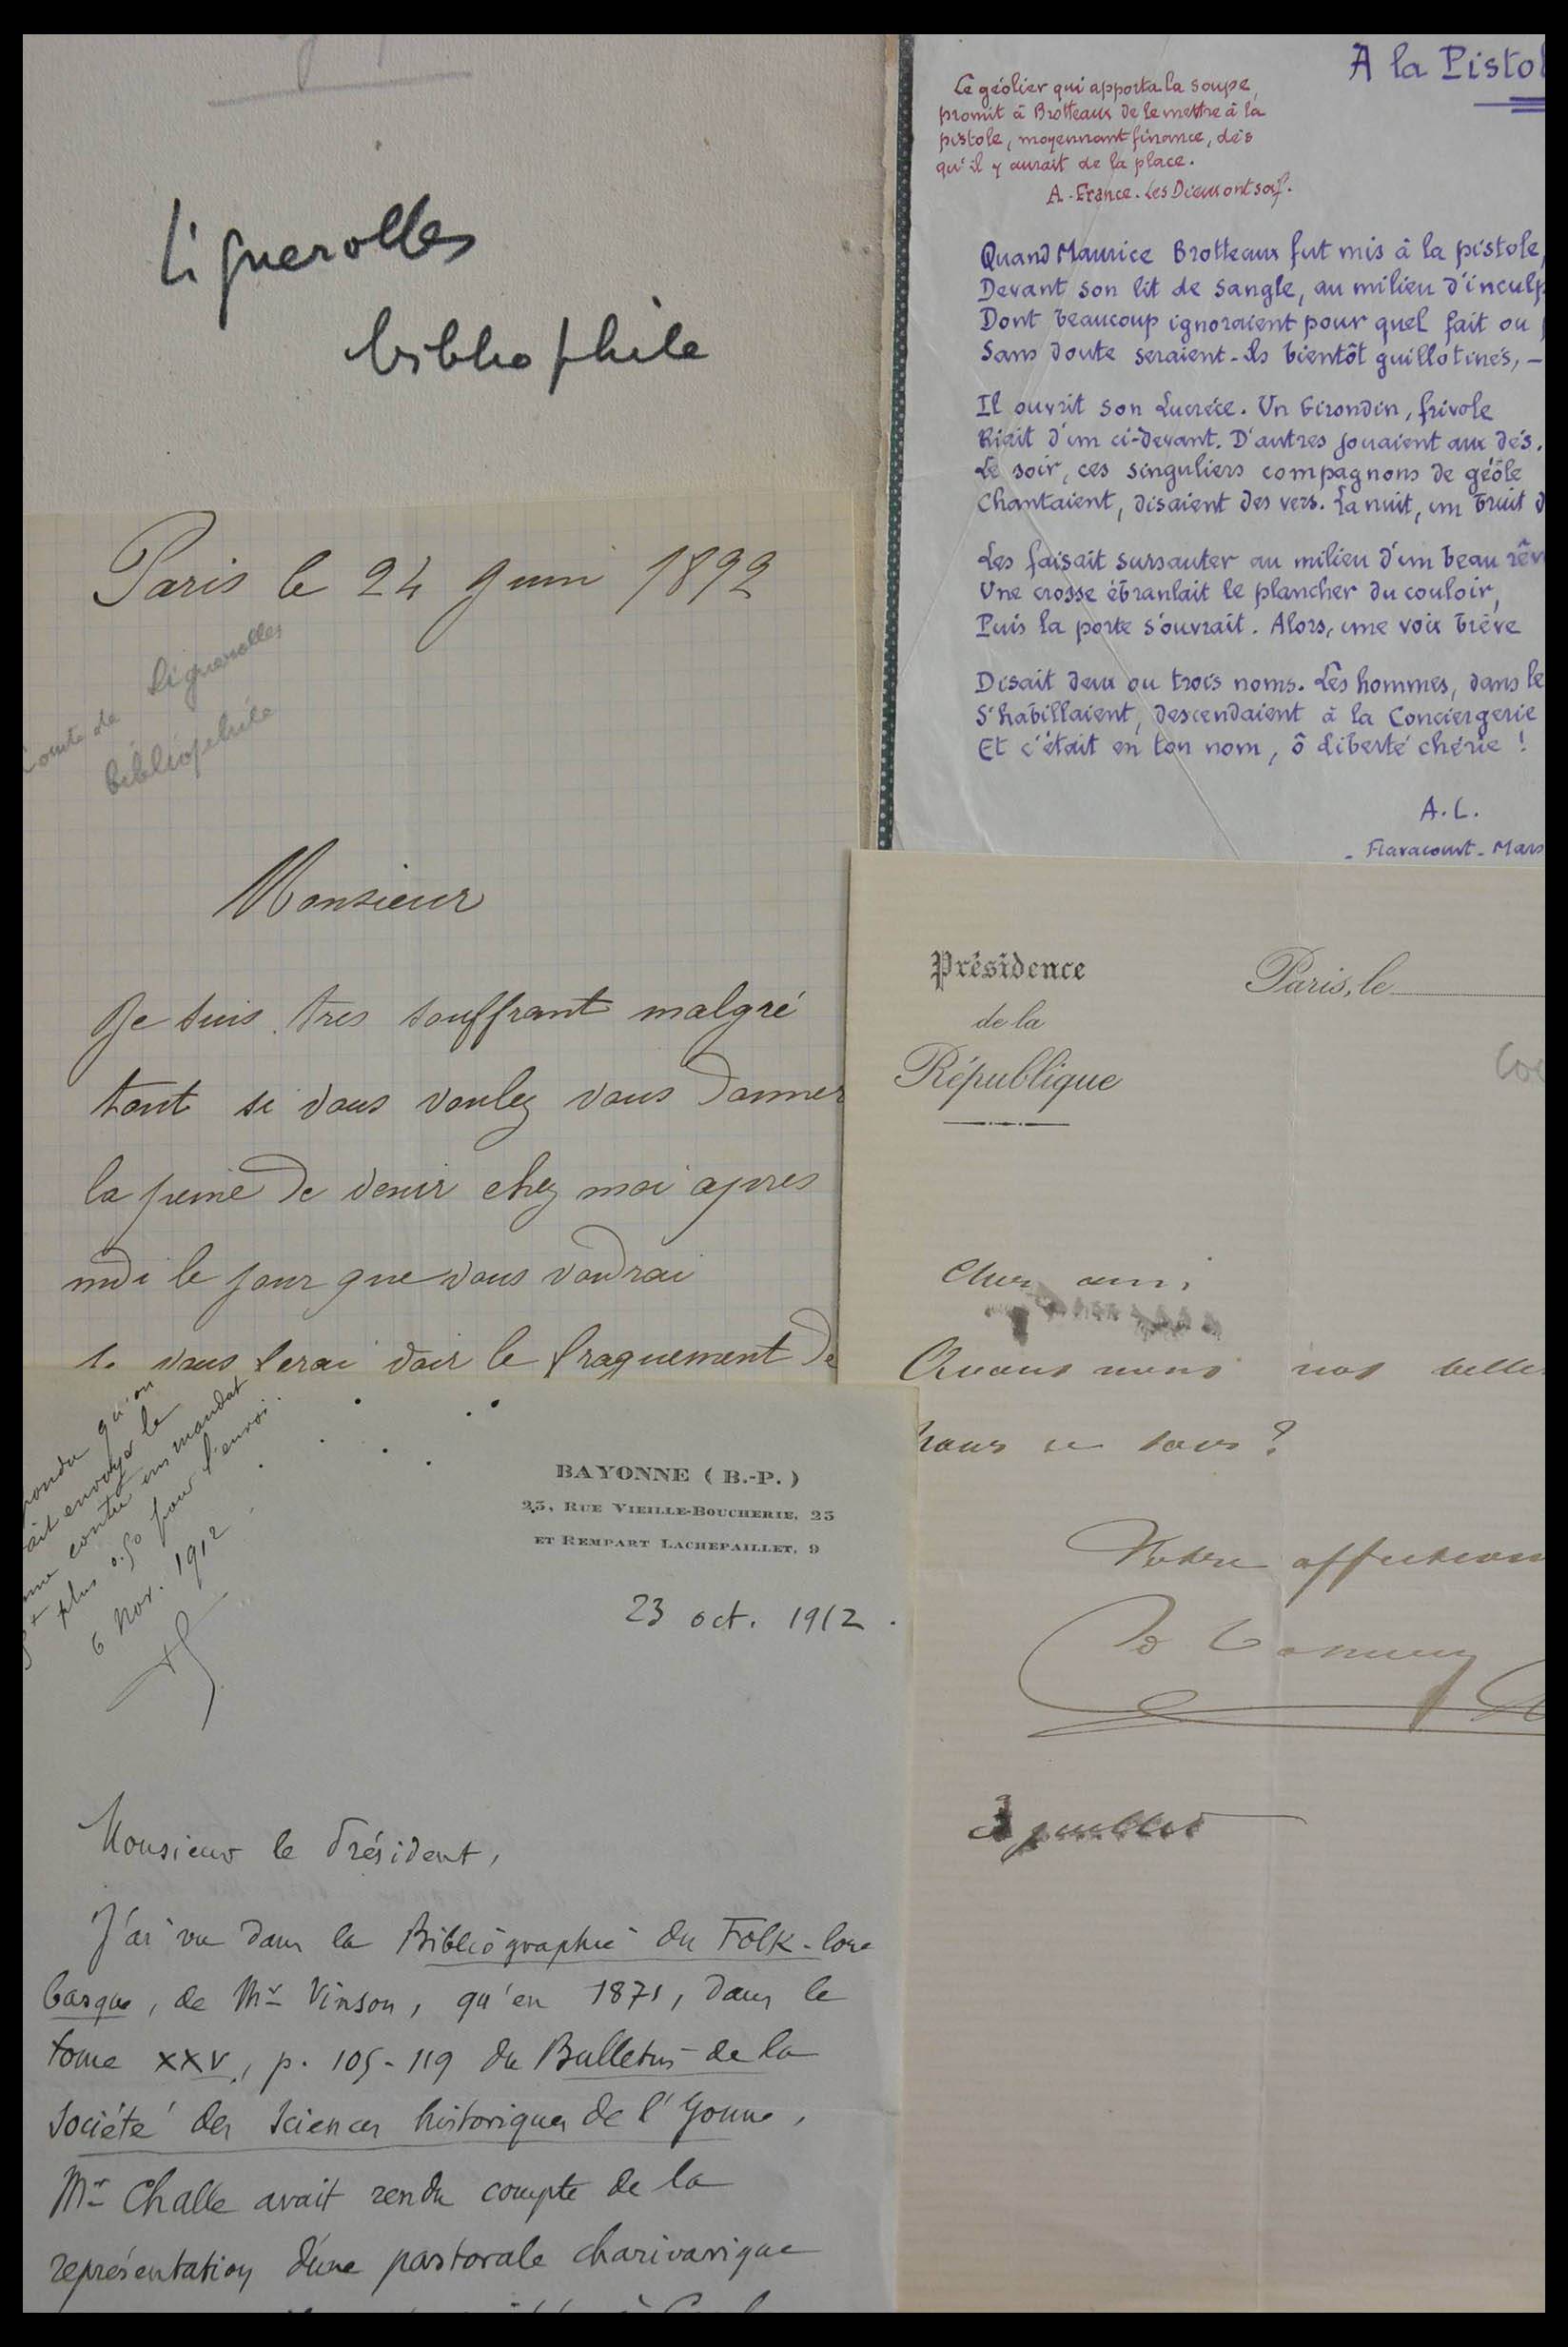 Lignerolles
bibliophile
A la Pistol
Le géolier qui apporta la soupe,
promit à Brotteaux de le mettre à la
pistole, moyennant finance, dès
qu'il y aurait de la place.
A. France. Les Dieux ont soif.
Quand Maurice Brotteaux fut mis à la pistole,
Devant son lit de sangle, au milieu d'inculp
Dont beaucoup ignoraient pour quel fait ou
Sans doute seraient-ils bientôt guillotinés, —
Il ouvrit son Lucrèce. Un Girondin, frivole
Riait d'un ci-devant. D'autres jouaient aux dés.
Le soir, ces singuliers compagnons de geôle
Chantaient, disaient des vers. La nuit, un bruit d
Les faisait sursauter au milieu d'un beau rêv
Une crosse ébranlait le plancher du couloir,
Puis la porte s'ouvrait. Alors, une voix brève
Disait deux ou trois noms. Les hommes, dans le
S'habillaient, descendaient à la Conciergerie
Et c'était en ton nom, ô Liberté chérie !
A.L.
- Flavacourt - Mars
Paris le 24 Juin 1892
Comte de Lignerolles
bibliophile
Monsieur
Je suis tres souffrant malgré
tout si vous voulez vous donner
la peine de venir chez moi apres
midi le jour que vous voudrai
je vous ferai voir le fraguement de
Présidence
de la
République
Paris, le
Cher ami
Avons nous nos belles
pour ce soir ?
Votre affection
3 juillet
qu'on
ait envoyer le
contre un mandat
plus 0.50 pour l'envoi.
6 Nov. 1912
BAYONNE ( B.-P. )
23, RUE VIEILLE-BOUCHERIE, 23
ET REMPART LACHEPAILLET, 9
23 oct. 1912.
Monsieur le Président,
J'ai vu dans la Bibliographie du Folk-lore
basque, de Mr Vinson, qu'en 1871, dans le
tome XXV, p. 105-119 du Bulletin de la
Société des Sciences historiques de l'Yonne,
Mr Challe avait rendu compte de la
représentation d'une pastorale charivarique